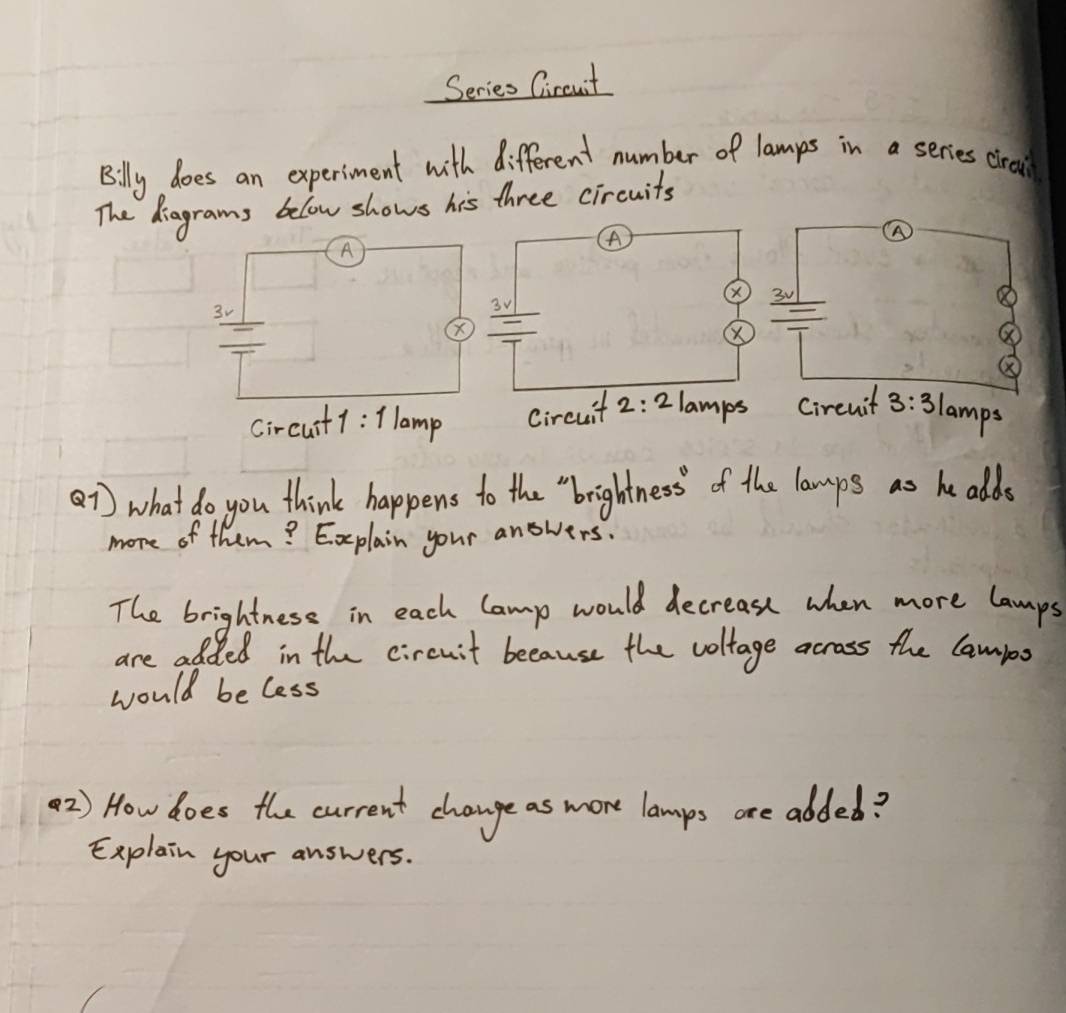 Series Circuit
Billy does an experiment with different number of lamps in a series circuit.
The diagrams below shows his three circuits
A A A
3v 3v 3v
X X X X X X
Circuit 1 : 1 lamp Circuit 2 : 2 lamps Circuit 3 : 3 lamps
Q1) What do you think happens to the "brightness" of the lamps as he adds
more of them? Explain your answers.
The brightness in each lamp would decrease when more lamps
are added in the circuit because the voltage across the lamps
would be less
Q2) How does the current change as more lamps are added?
Explain your answers.